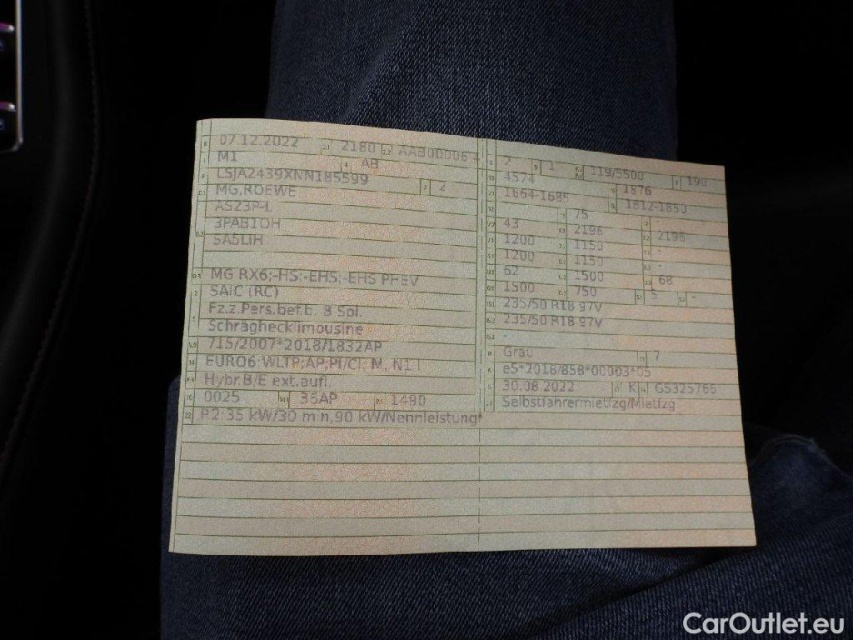 07.12.2022 2180 AAB00006 4
M1 AB
LSJA2439XNN185599 2
MG,ROEWE
AS23P-L
3PAB1OH
SA5LIH
MG RX6;-HS;-EHS;-EHS PHEV
SAIC (RC)
Fz.z.Pers.bef.b. 8 Spl.
Schräghecklimousine
715/2007*2018/1832AP
EURO6;WLTP;AP;PI/CI; M, N1 I
Hybr.B/E ext.aufl.
0025 36AP 1490
P.2:35 kW/30 min,90 kW/Nennleistung*
2 1 119/5500 190
4574 1876
1664-1685 1812-1853
75
43 2196 2196
1200 1150 -
1200 1150 -
62 1500 68
1500 750 5 -
235/50 R18 97V
235/50 R18 97V
-
Grau 7
e5*2018/858*00003*05
30.08.2022 K GS325766
Selbstfahrermietfzg/Mietfzg
CarOutlet.eu